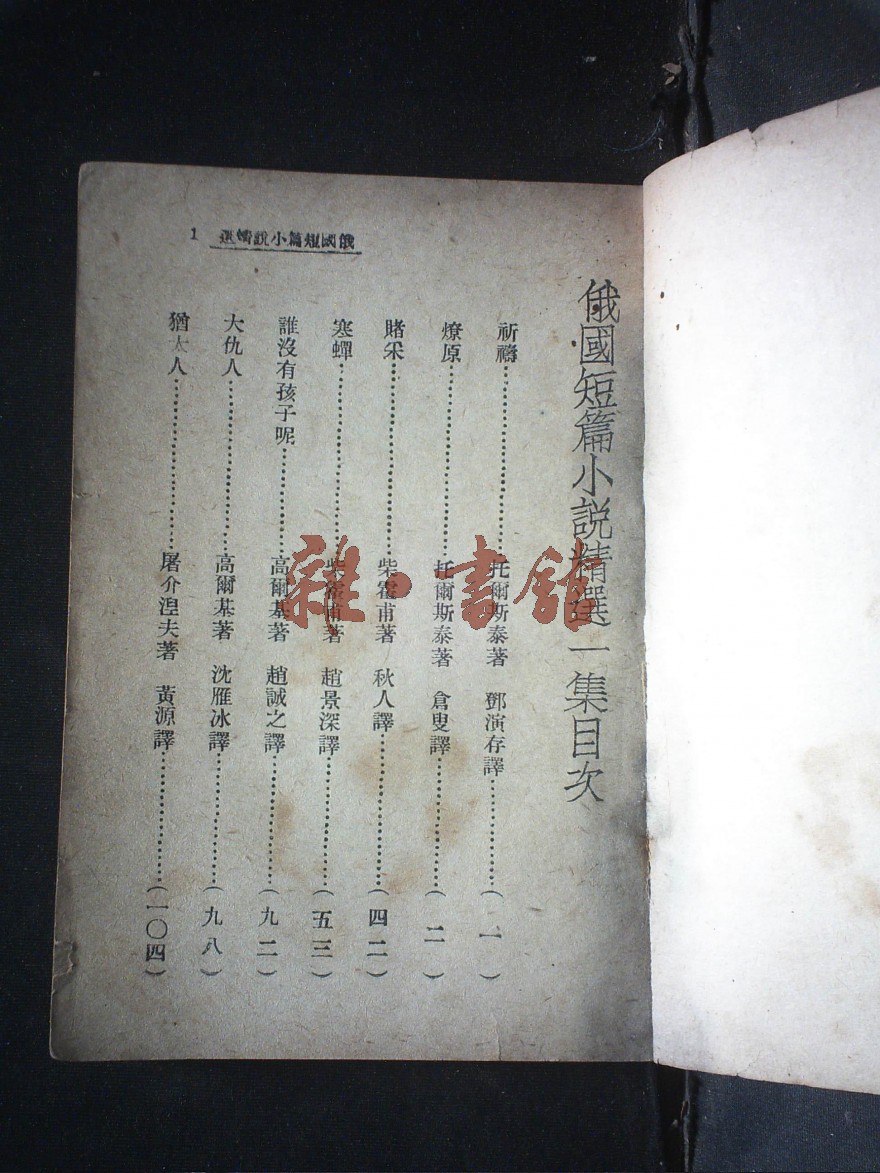 俄國短篇小說精選 1
俄國短篇小説精選一集目次
祈禱…………托爾斯泰著 鄧演存譯…………(一)
燎原…………托爾斯泰著 倉叟譯…………(二)
賭采…………柴霍甫著 秋人譯…………(四二)
寒蟬…………柴霍甫著 趙景深譯…………(五三)
誰沒有孩子呢…………高爾基著 趙誠之譯…………(九二)
大仇人…………高爾基著 沈雁冰譯…………(九八)
猶太人…………屠介湼夫著 黃源譯…………(一〇四)
雜·書館